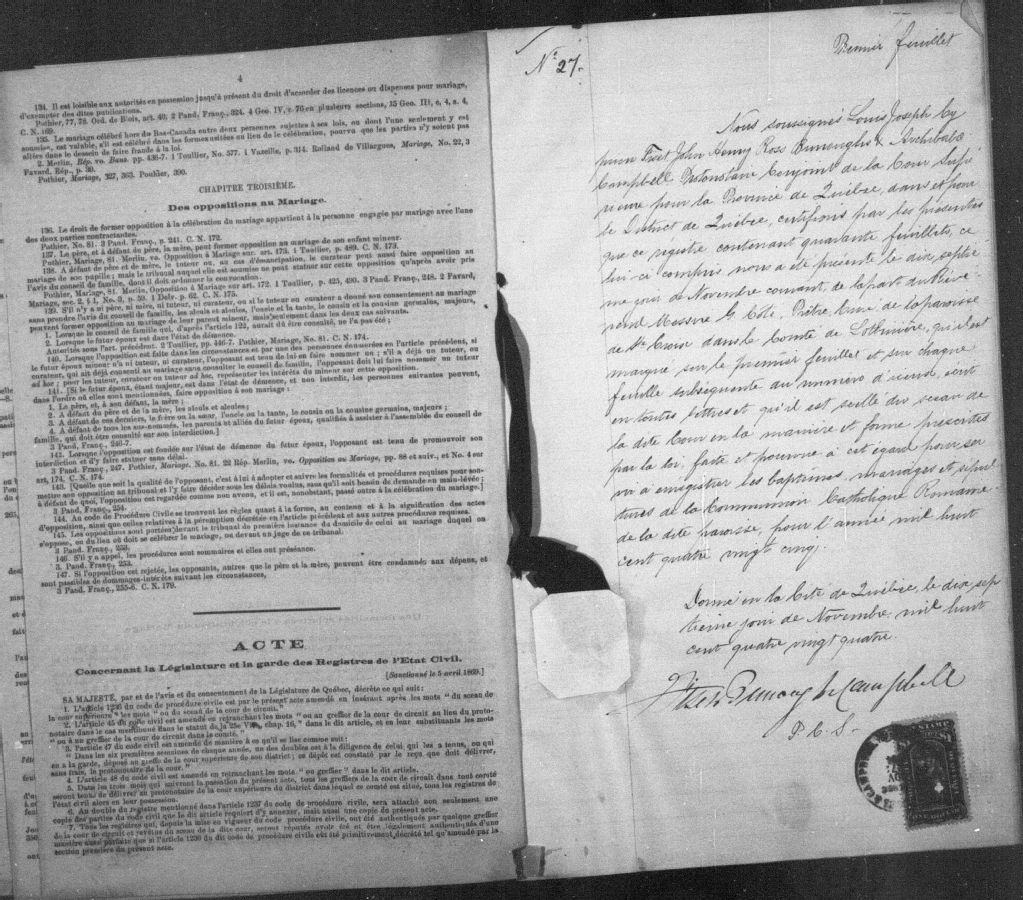 4
134. Il est loisible aux autorités en possession jusqu'à présent du droit d'accorder des licences ou dispenses pour mariage,
d'exempter des dites publications.
Pothier, 77, 78. Ord. de Blois, art. 40; 2 Pand. Franç., 324. 4 Geo. IV, c. 76 en plusieurs sections, 15 Geo. III, c. 4, s. 4,
C. N. 169.
135. Le mariage célébré hors du Bas-Canada entre deux personnes sujettes à ses lois, ou dont l'une seulement y est
soumise, est valable, s'il est célébré dans les formes usitées au lieu de la célébration, pourvu que les parties n'y soient pas
allées dans le dessein de faire fraude à la loi.
2 Merlin, Rép. vo. Bans. pp. 436-7. 1 Toullier, No. 577. 1 Vazeille, p. 314. Rolland de Villargues, Mariage, No. 22, 3
Favard, Rép., p. 30.
Pothier, Mariage, 327, 363. Pouhier, 390.
CHAPITRE TROISIÈME.
Des oppositions au Mariage.
136. Le droit de former opposition à la célébration du mariage appartient à la personne engagée par mariage avec l'une
des deux parties contractantes.
Pothier, No. 81. 3 Pand. Franç., p. 241. C. N. 172.
137. Le père, et à défaut du père, la mère, peut former opposition au mariage de son enfant mineur.
Pothier, Mariage, 81. Merlin, vo. Opposition à Mariage sur. art. 173. 1 Toullier, p. 489. C. N. 173.
138. A défaut de père et de mère, le tuteur ou, au cas d'émancipation, le curateur peut aussi faire opposition au
mariage de son pupille; mais le tribunal auquel elle est soumise ne peut statuer sur cette opposition qu'après avoir pris
l'avis du conseil de famille, dont il doit ordonner la convocation.
Pothier, Mariage, 81. Merlin, Opposition à Mariage sur art. 172. 1 Toullier, p. 425, 490. 3 Pand. Franç., 248. 2 Favard,
Mariage, sec. 2, § 1, No. 3, p. 59. 1 Delv. p. 62. C. N. 175.
139. S'il n'y a ni père, ni mère, ni tuteur, ni curateur, ou si le tuteur ou curateur a donné son consentement au mariage
sans prendre l'avis du conseil de famille, les aïeuls et aïeules, l'oncle et la tante, le cousin et la cousine germains, majeurs,
peuvent former opposition au mariage de leur parent mineur, mais seulement dans les deux cas suivants.
1. Lorsque le conseil de famille qui, d'après l'article 122, aurait dû être consulté, ne l'a pas été;
2. Lorsque le futur époux est dans l'état de démence.
Autorités sous l'art. précédent. 2 Toullier, pp. 446-7. Pothier, Mariage, No. 81. C. N. 174.
140. Lorsque l'opposition est faite dans les circonstances et par une des personnes énumérées en l'article précédent, si
le futur époux mineur n'a ni tuteur, ni curateur, l'opposant est tenu de lui en faire nommer un; s'il a déjà un tuteur, ou
curateur, qui ait déjà consenti au mariage sans consulter le conseil de famille, l'opposant doit lui faire nommer un tuteur
ad hoc; pour les tuteur, curateur ou tuteur ad hoc, représenter les intérêts du mineur sur cette opposition.
141. [Si le futur époux, étant majeur, est dans l'état de démence, et non interdit, les personnes suivantes peuvent,
dans l'ordre où elles sont mentionnées, faire opposition à son mariage:
1. Le père, et, à son défaut, la mère;
2. A défaut du père et de la mère, les aïeuls et aïeules;
3. A défaut de ces derniers, le frère ou la sœur, l'oncle ou la tante, le cousin ou la cousine germains, majeurs;
4. A défaut de tous les sus-nommés, les parents et alliés du futur époux, qualifiés à assister à l'assemblée du conseil de
famille, qui doit être consulté sur son interdiction.]
3 Pand. Franç., 246-7.
142. Lorsque l'opposition est fondée sur l'état de démence du futur époux, l'opposant est tenu de promouvoir son
interdiction et d'y faire statuer sans délai.
3 Pand. Franç., 247. Pothier, Mariage, No. 81. 22 Rép. Merlin, vo. Opposition au Mariage, pp. 88 et suiv., et No. 4 sur
art, 174, C. N. 174.
143. [Quelle que soit la qualité de l'opposant, c'est à lui à adopter et suivre les formalités et procédures requises pour sou-
mettre son opposition au tribunal et l'y faire décider sous les délais voulus, sans qu'il soit besoin de demande en main-levée;
à défaut de quoi, l'opposition est regardée comme non avenu, et il est, nonobstant, passé outre à la célébration du mariage.]
3 Pand. Franç., 254.
144. Au code de Procédure Civile se trouvent les règles quant à la forme, au contenu et à la signification des actes
d'opposition, ainsi que celles relatives à la péremption décrétée en l'article précédent et aux autres procédures requises.
145. Les oppositions sont portées devant le tribunal de première instance du domicile de celui au mariage duquel on
s'oppose, ou du lieu où doit se célébrer le mariage, ou devant un juge de ce tribunal.
3 Pand. Franç., 253.
146. S'il y a appel, les procédures sont sommaires et elles ont préséance.
3. Pand. Franç., 253.
147. Si l'opposition est rejetée, les opposants, autres que le père et la mère, peuvent être condamnés aux dépens, et
sont passibles de dommages-intérêts suivant les circonstances.
3 Pand. Franç., 255-6. C. N. 179.
ACTE
Concernant la Législature et la garde des Registres de l'Etat Civil.
[Sanctionné le 5 avril 1869.]
SA MAJESTÉ, par et de l'avis et du consentement de la Législature de Québec, décrète ce qui suit:
1. L'article 1236 du code de procédure civile est par le présent acte amendé en insérant après les mots "du sceau de
la cour supérieure" les mots "ou du sceau de la cour de circuit."
2. L'article 45 du code civil est amendé en retranchant les mots "ou au greffier de la cour de circuit au lieu du proto-
notaire dans le cas mentionné dans le statut de la 25e Vic., chap. 16," dans le dit article, et en leur substituant les mots
"ou à un greffier de la cour de circuit dans le comté."
3. l'article 47 du code civil est amendé de manière à ce qu'il se lise comme suit:
"Dans les six premières semaines de chaque année, un des doubles est à la diligence de celui qui les a tenus, ou qui
en a la garde, déposé au greffe de la cour supérieure de son district; ce dépôt est constaté par le reçu que doit délivrer,
sans frais, le protonotaire de la cour."
4. L'article 48 du code civil est amendé en retranchant les mots "ou greffier" dans le dit article.
5. Dans les trois mois qui suivront la passation du présent acte, tous les greffiers de la cour de circuit dans tout comté
seront tenus de délivrer au protonotaire de la cour supérieure du district dans lequel ce comté est situé, tous les registres de
l'état civil alors en leur possession.
6. Au double du registre mentionné dans l'article 1237 du code de procédure civile, sera attaché non seulement une
copie des parties du code civil que le dit article requiert d'y annexer, mais aussi une copie du présent acte.
7. Tous les registres qui, depuis la mise en vigueur du code de procédure civile, ont été authentiqués par quelque greffier
de la cour de circuit et revêtus du sceau de la dite cour, seront réputés avoir été et être légalement authentiqués d'une
manière aussi parfaite que si l'article 1236 du dit code de procédure civile eût été primitivement décrété tel qu'amendé par la
section première du présent acte.
No 27.
Premier feuillet
Nous soussignés Louis Joseph Cy
prien Fiset John Henry Ross Burroughs & Archibald
Campbell Protonotaire Conjoint de la Cour Supé
rieure pour la Province de Québec, dans et pour
le District de Québec, certifions par les présentes
que ce registre contenant quarante feuillets, ce
lui-ci compris nous a été présenté le dix, septiè
me jour de Novembre courant, de la part du Révé-
rend Messire G. Côté, Prêtre, Curé de la paroisse
de Ste Croix dans le Comté de Lotbinière, qu'il est
marqué sur le premier feuillet et sur chaque
feuille subséquente du numéro d'icend, écrit
en toutes lettres et qu'il est scellé du sceau de
la dite Cour en la manière et forme prescrites
par la loi, faite et pourvue à cet égard pour ser
vir à enregistrer les baptêmes, mariages et sépul
tures de la Communion Catholique Romaine
de la dite paroisse, pour l'année mil huit
cent quatre vingt cinq.
Donné en la Cité de Québec, le dix, sep
tième jour de Novembre, mil huit
cent quatre vingt quatre.
Fiset Burroughs Campbell
P. C. S.